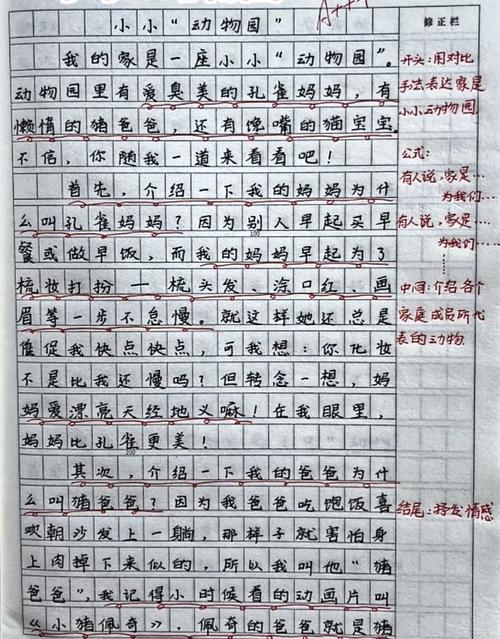 小小“动物园”
A++
修正栏
我的家是一座小小“动物园”。
动物园里有爱臭美的孔雀妈妈,有
懒惰的猪爸爸,还有馋嘴的猫宝宝。
不信,你随我一道来看看吧!
首先,介绍一下我的妈妈为什
么叫孔雀妈妈?因为别人早起买早
100
餐或做早饭,而我的妈妈早起为了
梳妆打扮一梳头发、涂口红、画
眉等一步不怠慢。就这样她还总是
催促我快点快点,可我想:你化妆
不是比我还慢吗?但转念一想,妈
妈爱漂亮天经地义嘛!在我眼里,
妈妈比孔雀更美!
200
其次,介绍一下我的爸爸为什
么叫猪爸爸?因为我爸爸吃饱饭喜
欢朝沙发上一躺,那样子就害怕身
上肉掉下来似的,所以我叫他“猪
爸爸”,我记得小时候看的动画片叫
《小猪佩奇》,佩奇的爸爸就是猪
开头:用对比
手法表达家是
小小动物园
公式:
有人说,家是…
为我们…
有人说,家是…
为我们…
……
中间:介绍各个
家庭成员所代
表的动物
结尾:抒发情感